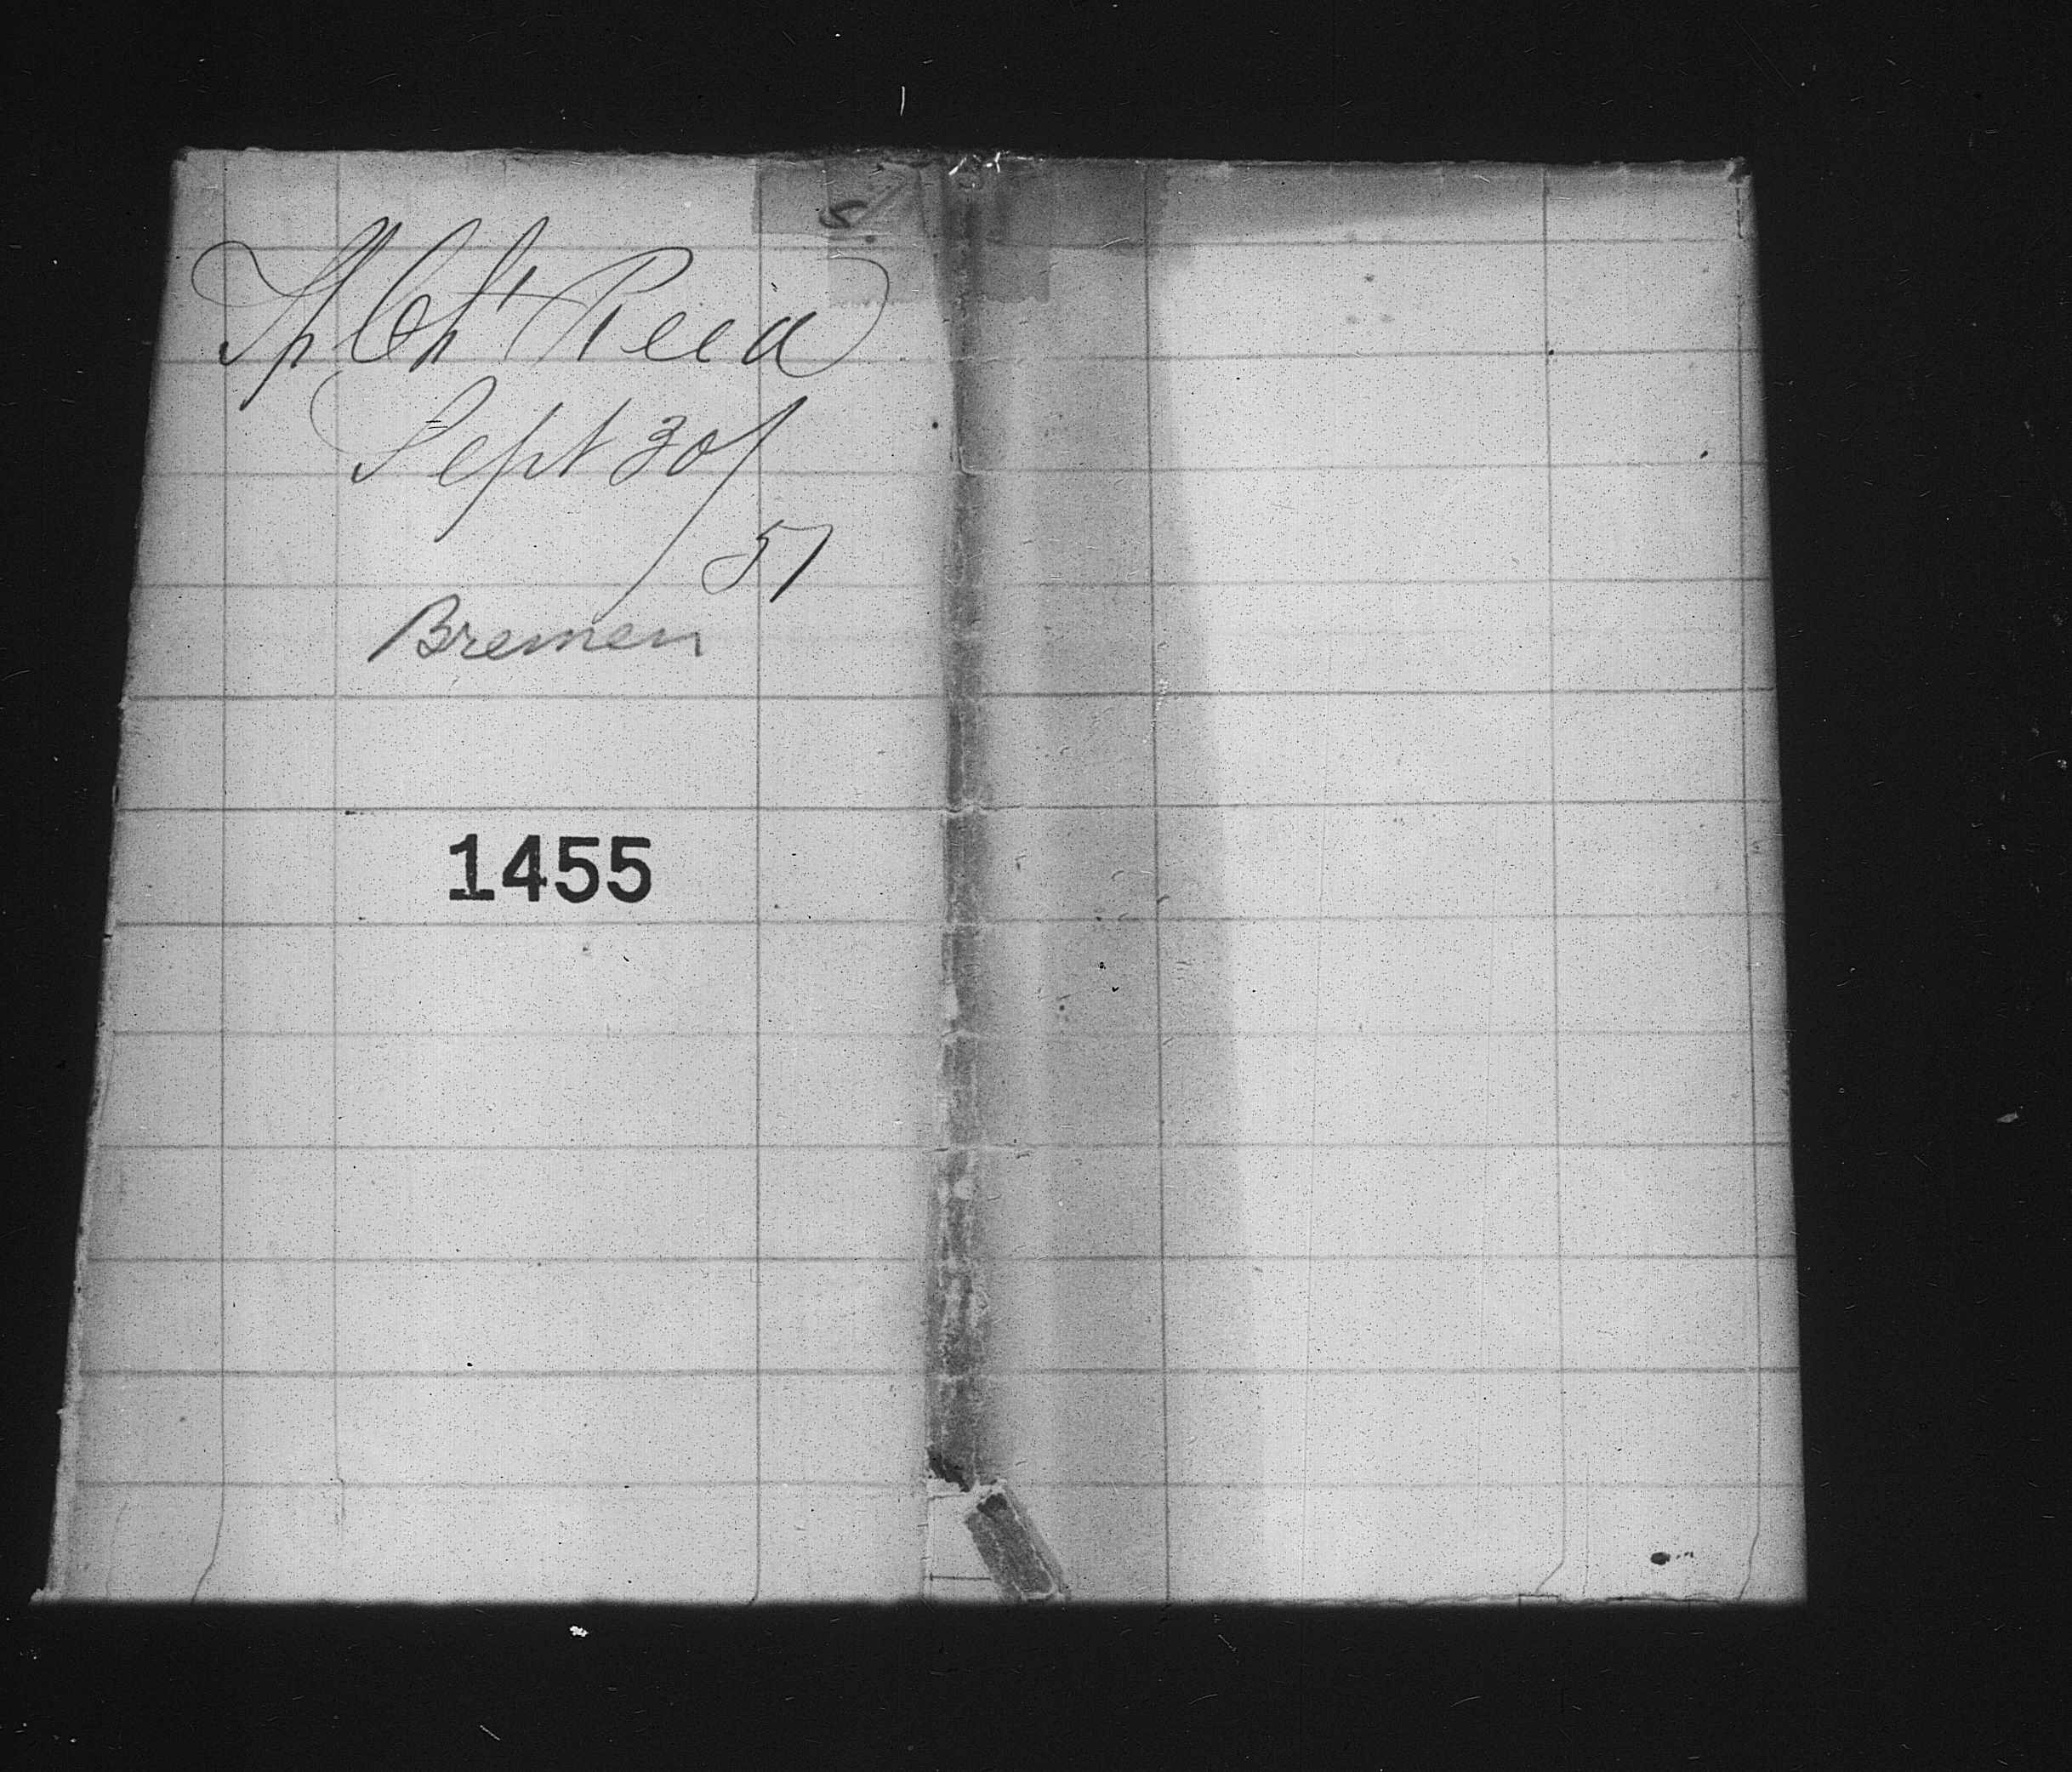 Sp Ch Reed
Sept 30/
51
Bremen
1455